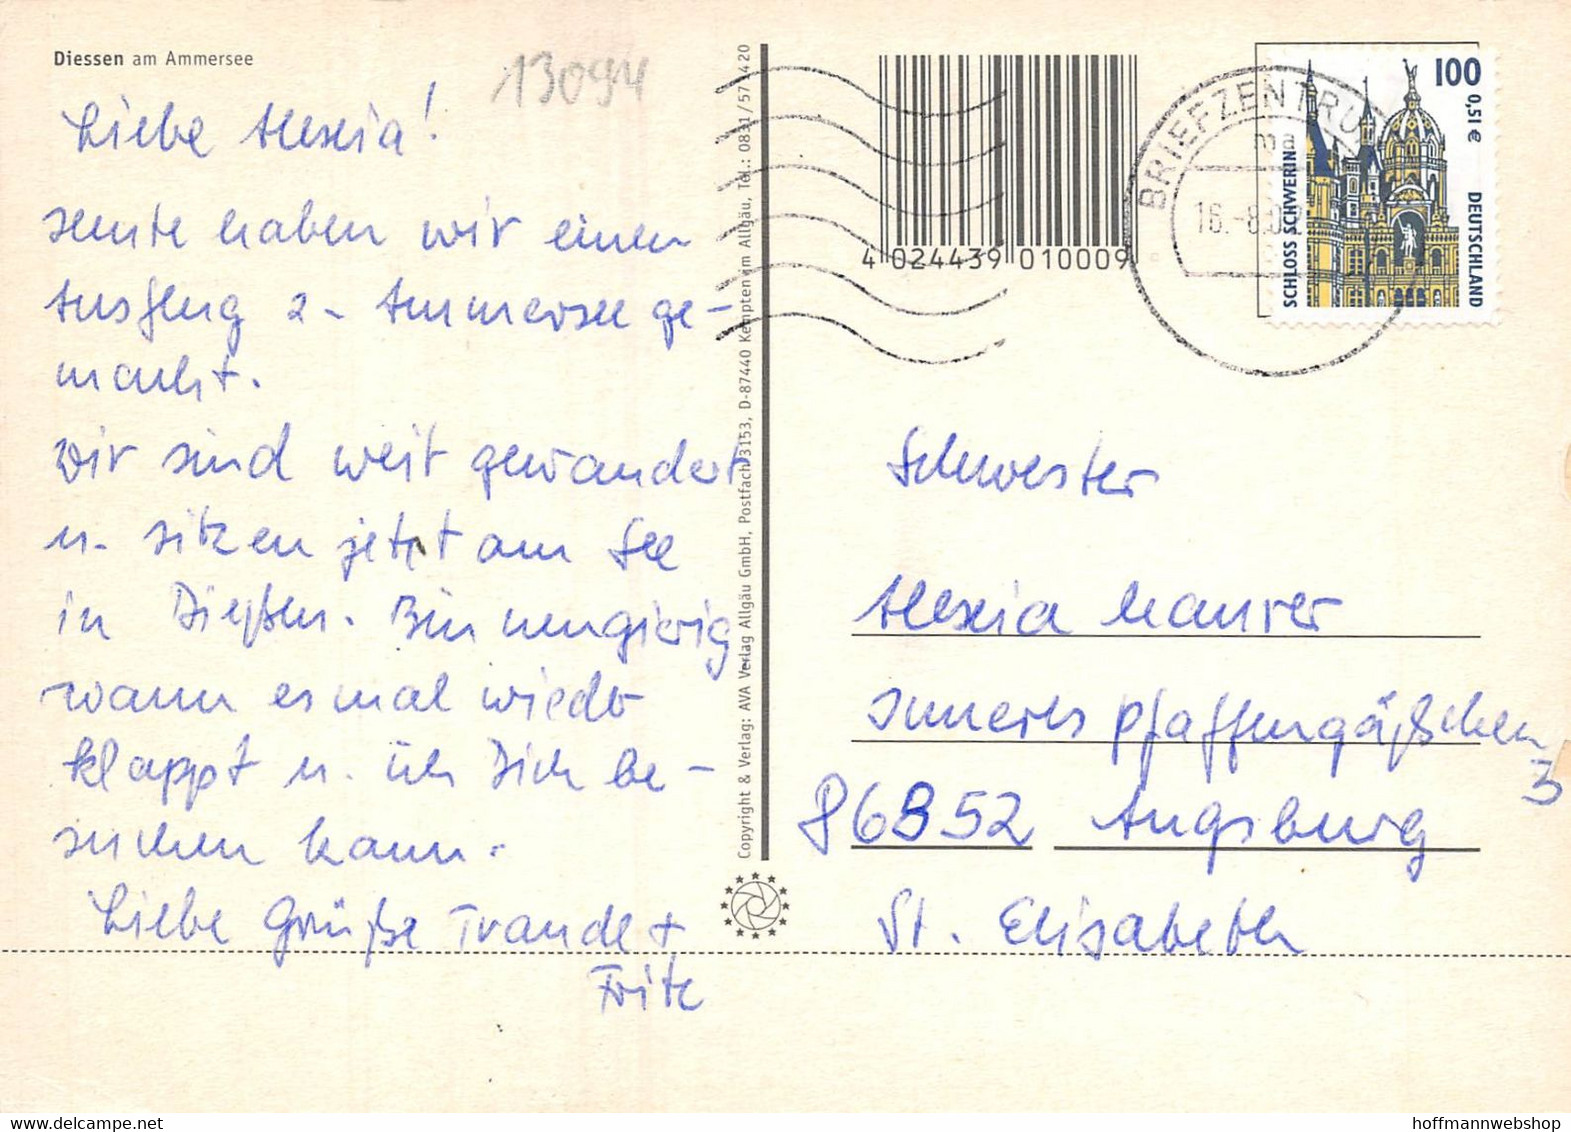 Diessen am Ammersee
13094
Liebe Alexia!
heute haben wir einen
Ausflug z. Ammersee ge-
macht.
Wir sind weit gewandert
u. sitzen jetzt am See
in Dießen. Bin neugierig
wann es mal wieder
klappt u. ich Dich be-
suchen kann.
Liebe Grüße Traudel +
Fritz
Copyright & Verlag: AVA Verlag Allgäu GmbH, Postfach 3153, D-87440 Kempten im Allgäu, Tel.: 0831/571420
4 024439 010009
BRIEFZENTRUM
ma
16.-8.0
100
0,51 €
SCHLOSS SCHWERIN
DEUTSCHLAND
Schwester
Alexia Maurer
Inneres Pfaffengäßchen
3
86852 Augsburg
St. Elisabeth
hoffmannwebshop